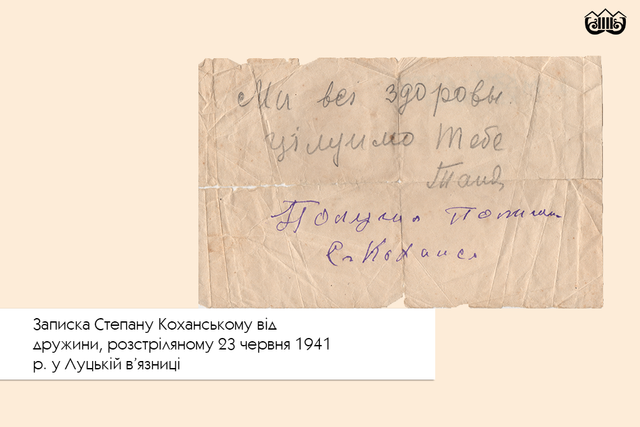 Ми всі здоровы.
цілуимо Тебе
Таня
Получил
Ст Коханск
Записка Степану Коханському від
дружини, розстріляному 23 червня 1941
р. у Луцькій в’язниці